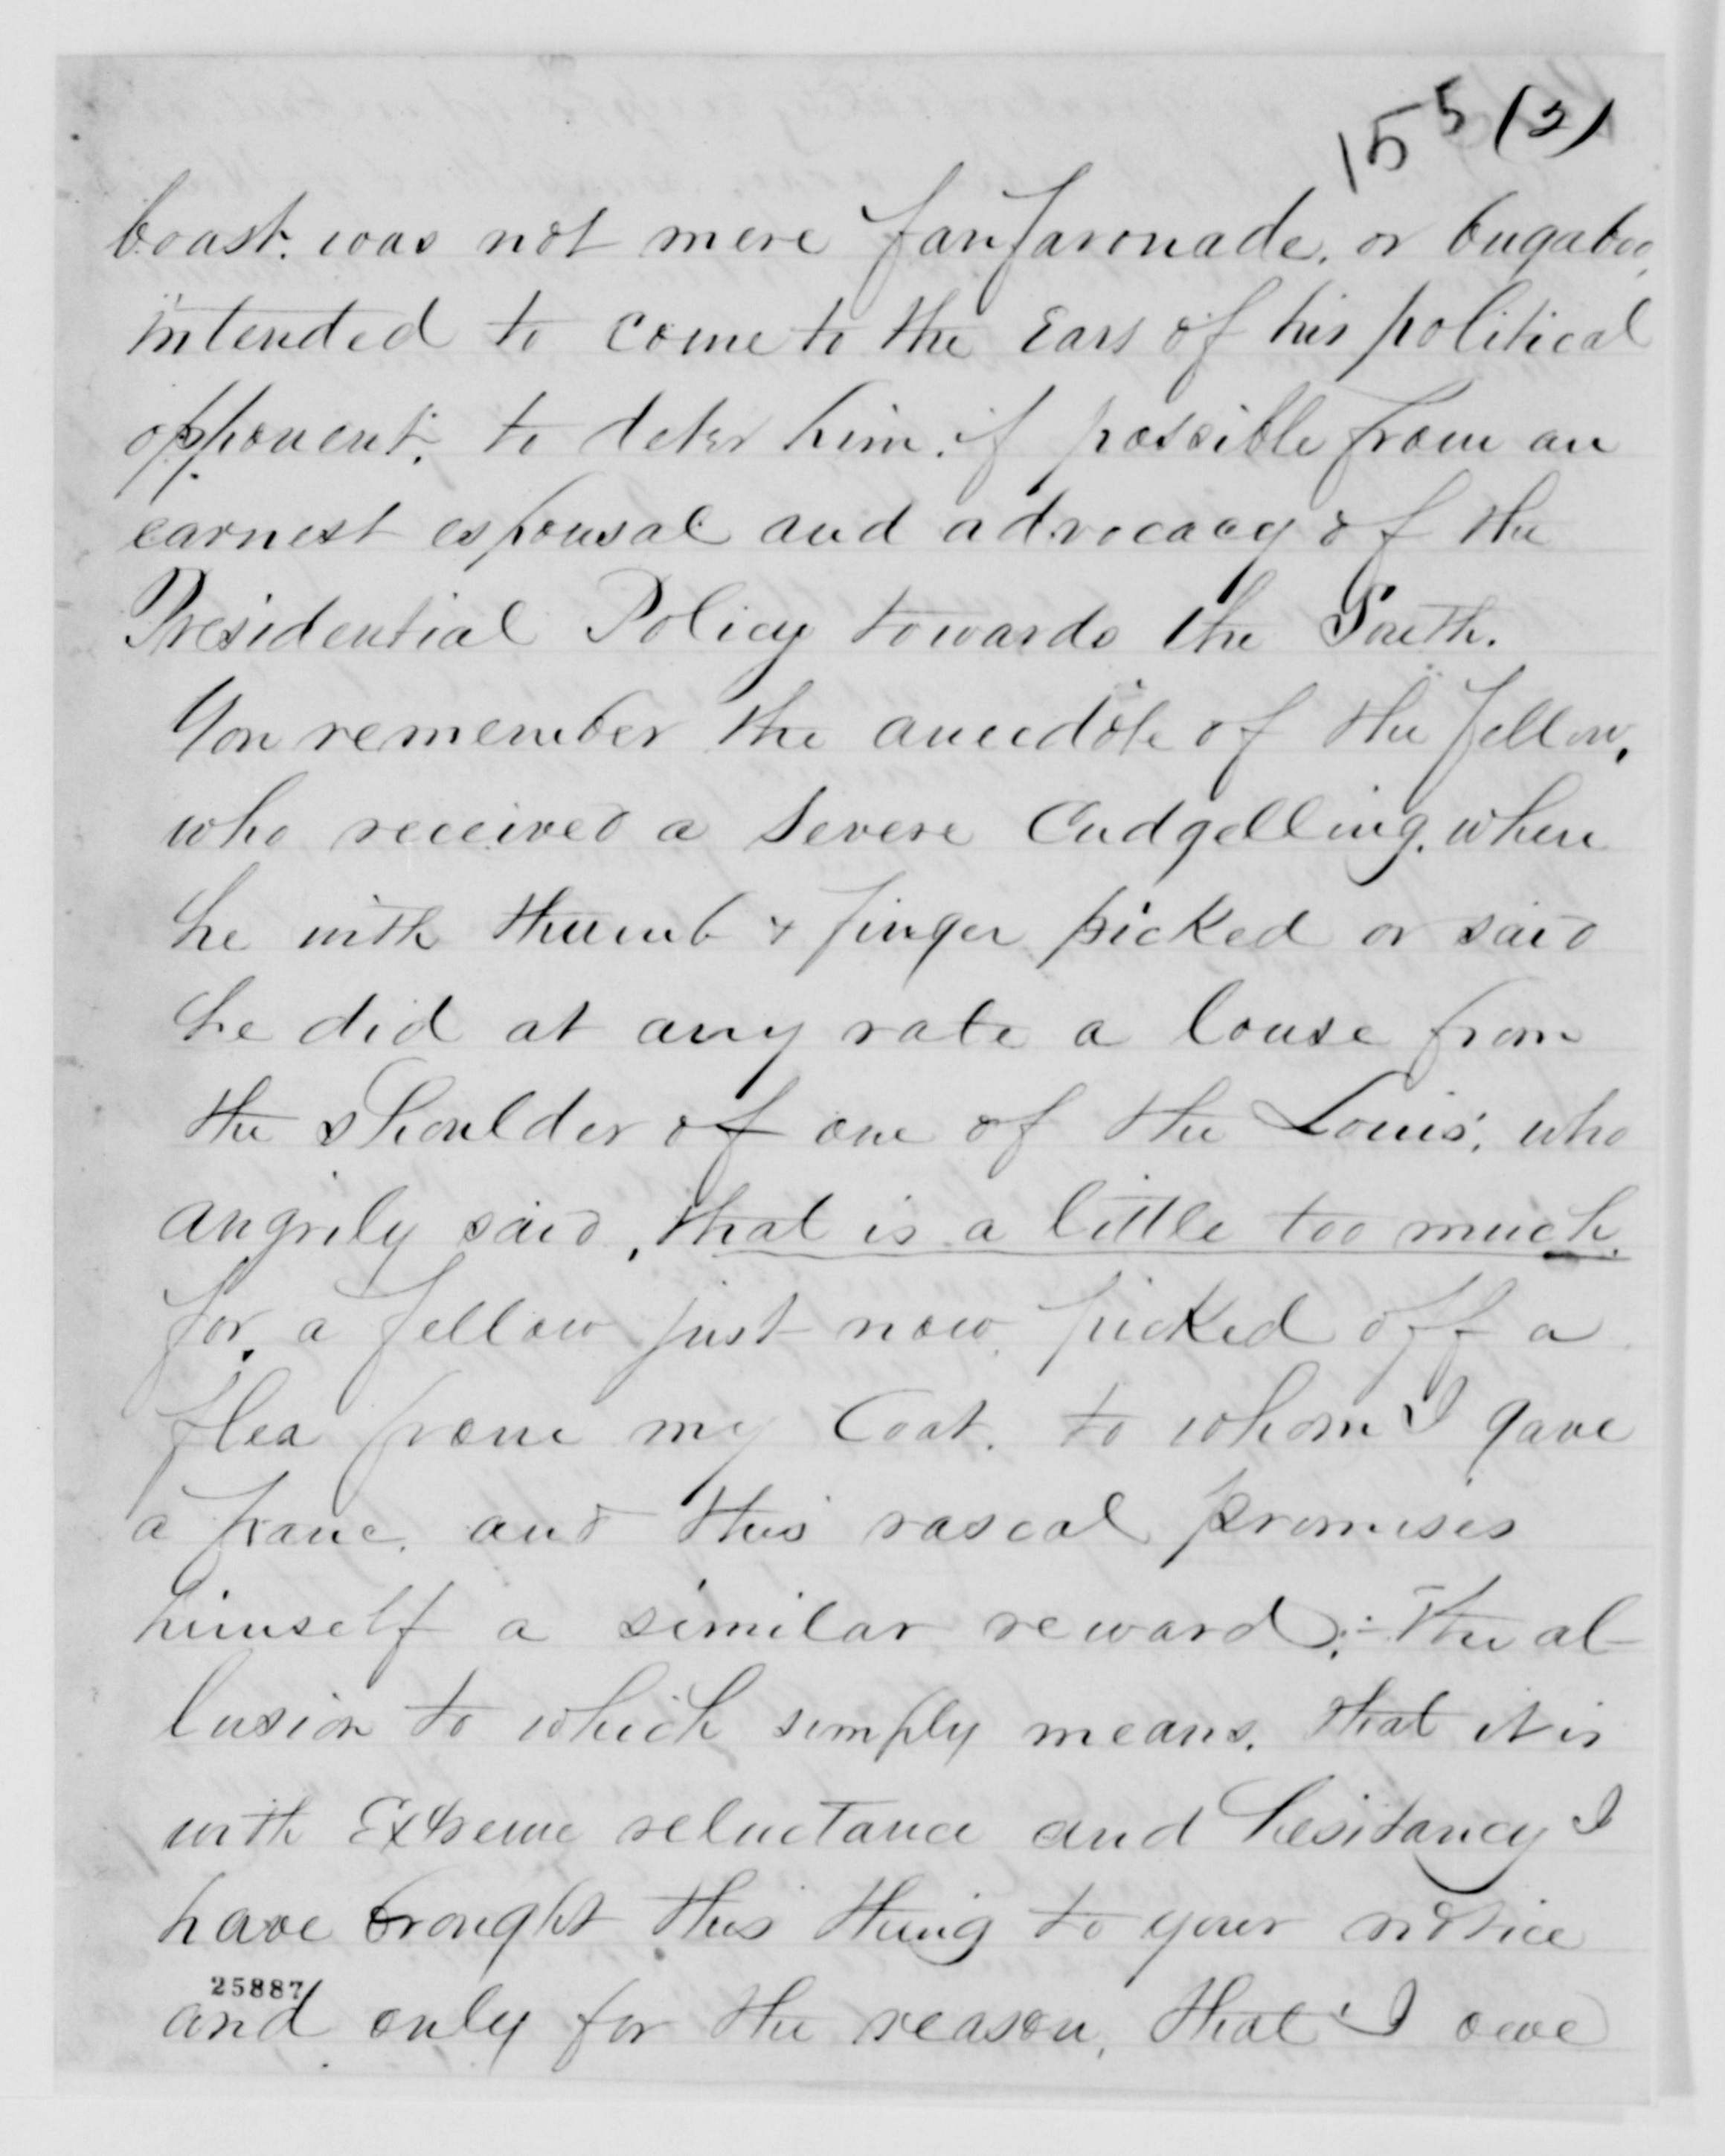 155 (2)
boast. was not mere fanfaronade, or bugaboo,
intended to come to the Ears of his political
opponent, to deter him, if possible from an
earnest espousal and advocacy of the
Presidential Policy towards the South.
You remember the anecdote of the fellow,
who received a severe Cudgelling, when
he with thumb & finger picked or said
he did at any rate a louse from
the shoulder of one of the Louis', who
angrily said, that is a little too much,
for, a fellow just now, picked off a
flea from my Coat, to whom I gave
a franc, and this rascal promises
himself a similar reward;- The al-
lusion to which simply means, that it is
with Extreme reluctance and hesitancy I
have brought this thing to your notice
25887
and only for the reason, that I owe